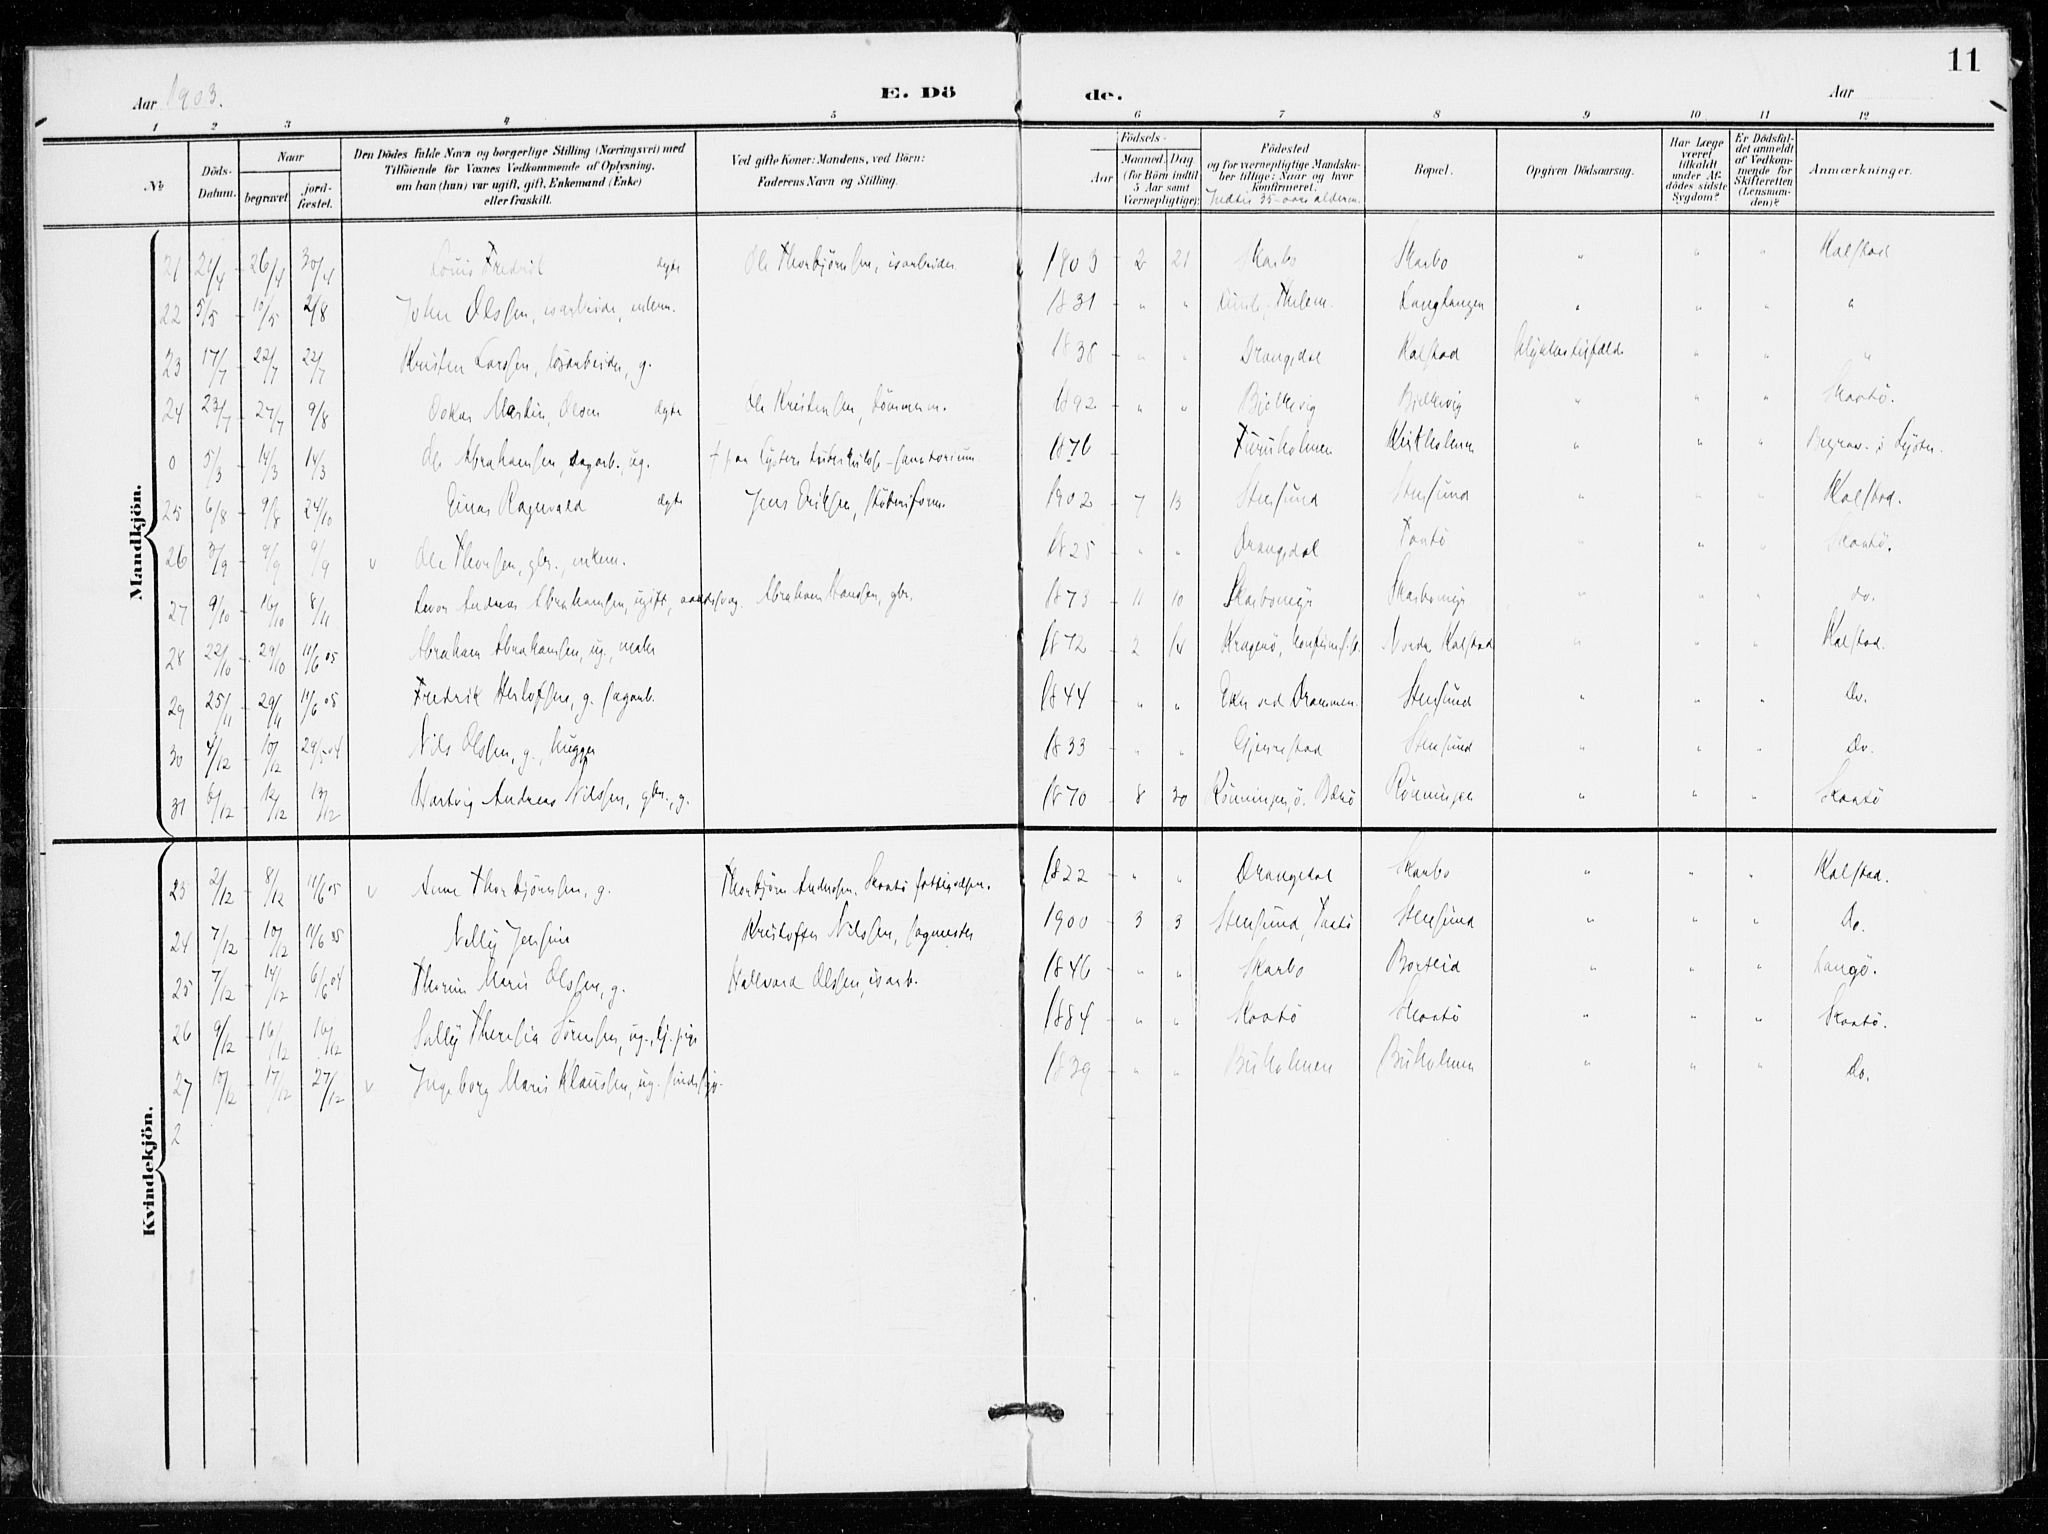 11
Aar 1903.
E. Dö de.
Aar
1 2 3 4 5 6 7 8 9 10 11 12
№
Döds-Datum.
Naar
begravet
jord-fæstet.
Den Dödes fulde Navn og borgerlige Stilling (Næringsvei) med Tilföiende for Voxnes Vedkommende af Oplysning, om han (hun) var ugift, gift, Enkemand (Enke) eller fraskilt.
Ved gifte Koner: Mandens, ved Börn: Faderens Navn og Stilling.
Födsels-
Aar
Maaned. Dag
(for Börn indtil 5 Aar samt Værnepligtige).
Födested og for værnepligtige Mandskaber tillige: Naar og hvor Konfirmeret.
Indtil 35-aars alderen.
Bopæl.
Opgiven Dödsaarsag.
Har Læge været tilkaldt under Afdödes sidste Sygdom?
Er Dödsfaldet anmeldt af Vedkommende for Skifteretten (Lensmanden)?
Anmærkninger.
Mandkjön.
21 21/4 26/4 30/4 Louis Fredrik ægte Ole Thorbjørnsen, isarbeider 1903 2 21 Skarbo Skarbo " " " Kalstad
22 5/5 10/5 2/8 John Olssen, isarbeide, enkem. 1831 " " Langtangen " " " "
23 17/7 22/7 22/7 Kristen Larssen, løsarbeider, g. 1838 " " Drangedal Kalstad Ulykkestilfælde " " "
24 23/7 27/7 9/8 Oskar Martin Olsen ægte Ole Kristensen, tømmerm. 1892 " " Bjelkevig Bjelkevig " " " Skaatö.
0 5/3 14/3 14/3 Ole Abrahamsen, dagarb., ug. † paa Lysters tuberkulose-sanatorium 1876 Furuholmen Kirkholmen " " " Begrav. i Lyster.
25 6/8 9/8 24/10 Einar Ragnvald ægte Jens Eriksen, støberiform. 1902 7 13 Stensund Stensund " " " Kalstad.
26 3/9 9/9 9/9 v Ole Thorsen, gbr., enkem. 1825 " " Drangedal Taatö " " " Skaatö.
27 9/10 16/10 8/11 Andreas Abrahamsen, ugift, aandssvag. Abraham Hanssen, gbr. 1873 11 10 Skarbomyr Skarbomyr " " " do.
28 22/10 29/10 11/6 05 Abraham Abrahamsen, ug., maler 1872 2 14 Kragerö, Nordre Kalstad " " " Kalstad.
29 25/11 29/11 11/6 05 Fredrik Herlofsen, g. sagarb. 1844 " " Eker ved Drammen. Stensund " " " Do.
30 4/12 10/12 29/5 04 Nils Olssen, g., hugger 1833 " " Gjerrestad Stensund " " " Do.
31 6/12 12/12 13/12 Hartvig Andreas Nilssen, gbr., g. 1870 8 30 Rönningen, ö. Bærö Rönningen " " " Skaatö
Kvindekjön.
23 2/12 8/12 11/6 05 v Anne Thorbjørnsen, g. Thorbjørn Andersen, Skaatö fattigvæsen. 1822 " " Drangedal Skarbo " " " Kalstad.
24 7/12 10/12 11/6 05 Nelly Jensine Kristoffer Nilssen, sagmester 1900 3 3 Stensund, Taatö Stensund " " " Do.
25 7/12 14/12 6/6 04 Thorine Marie Olssen, g. Hallvard Olssen, isarb. 1846 " " Skarbo Borteid " " " Langö.
26 9/12 16/12 16/12 Sally Theresia Sørensen, ug., tj. pige 1884 " " Skaatö Skaatö " " " Skaatö.
27 10/12 17/12 27/12 v Ingeborg Marie Klaussen, ug. sindssyg. 1839 " " Buholmen Buholmen " " " Do.
2